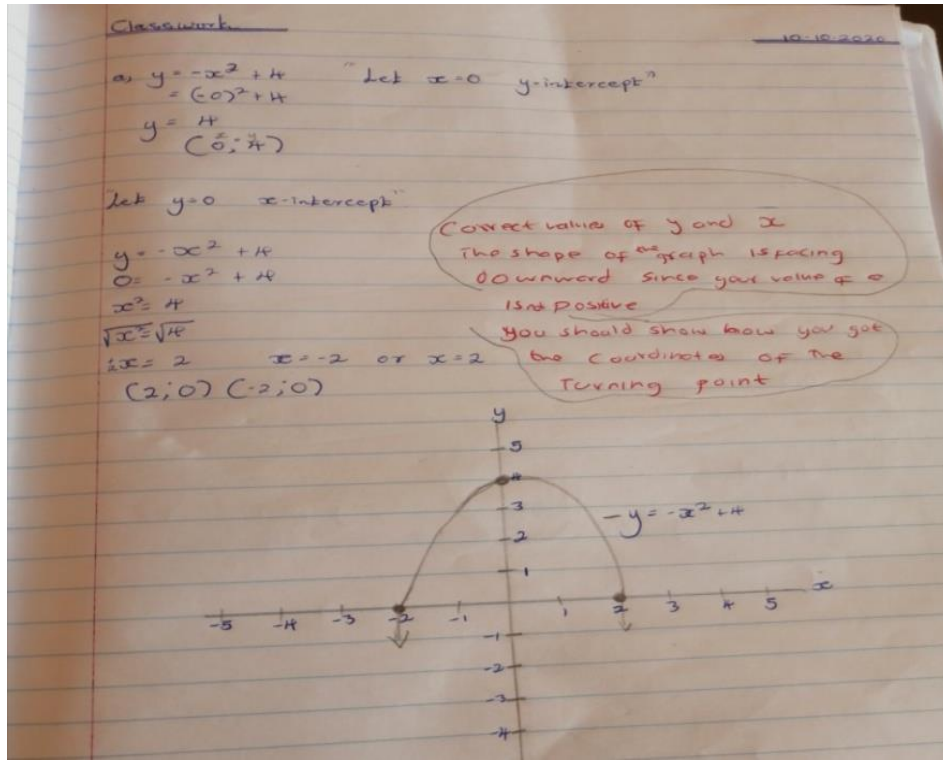 Classwork
10-10-2020
a, y = -x² + 4 "Let x=0 y-intercept"
= (-0)² + 4
y = 4
x y
(0; 4)
"Let y=0 x-intercept"
y = -x² + 4
0 = -x² + 4
x² = 4
√x² = √4
∴x = 2 x = -2 or x = 2
(2;0) (-2;0)
Correct values of y and x
The shape of the graph is facing
Downward since your value of a
isnt positive
You should show how you got
the coordinates of the
Turning point
y
5
4
3
2
1
-5 -4 -3 -2 -1 1 2 3 4 5 x
-1
-2
-3
-4
y = -x² + 4